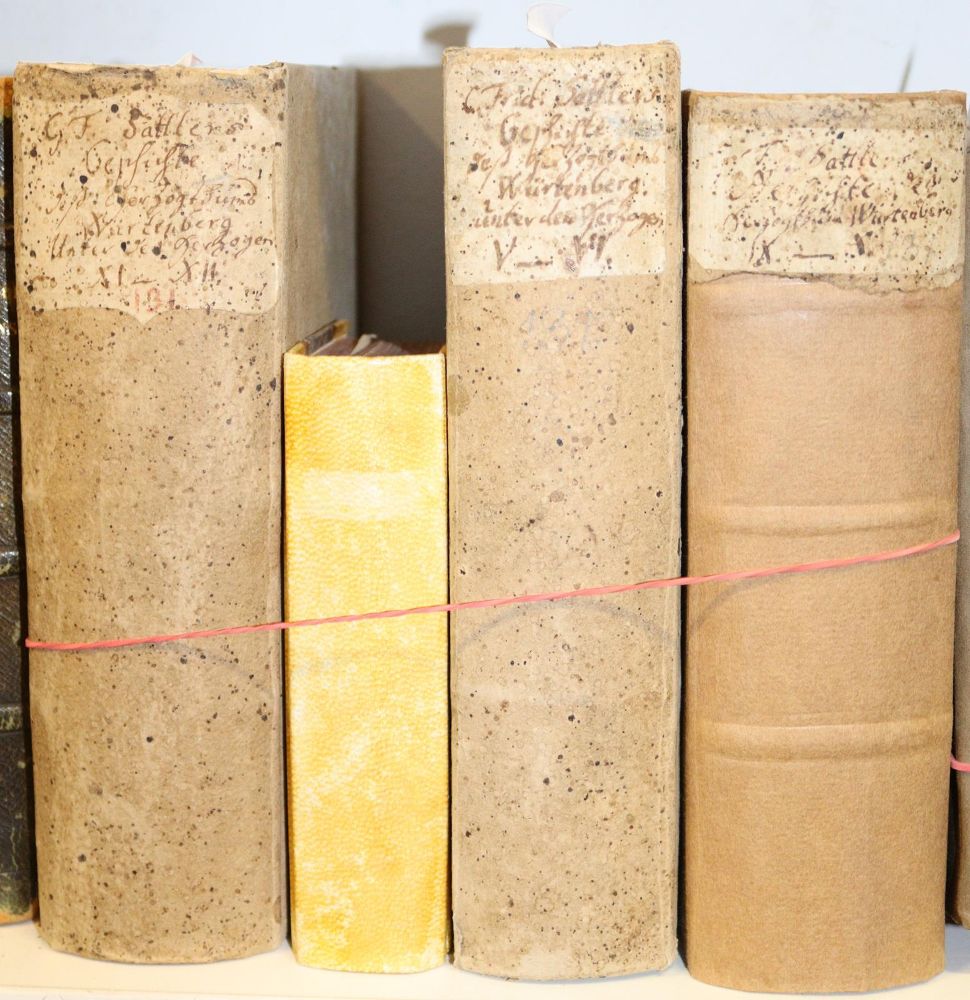 C. F. Sattlers
Geschichte
Herzogthums
Würtenberg
Unter den Herzogen
XI — XII
C. Frid: Sattlers
Geschichte
des Herzogthums
Würtenberg.
unter den Herzogen
V — VII
F. Sattlers
Geschichte
Herzogthum Würtenberg
IX — X